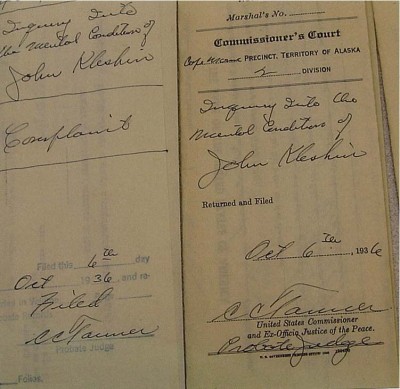 Inquiry Into
the Mental Condition of
John Kleshin
Complaint
Filed this 6th day
Oct 1936
Filed
CC Tanner
Probate Judge
Folios.
Marshal's No.
Commissioner's Court
Cape Nome PRECINCT, TERRITORY OF ALASKA
2 DIVISION
Inquiry Into the
Mental Condition of
John Kleshin
Returned and Filed
Oct 6th, 1936
CC Tanner
United States Commissioner
and Ex-Officio Justice of the Peace.
Probate Judge